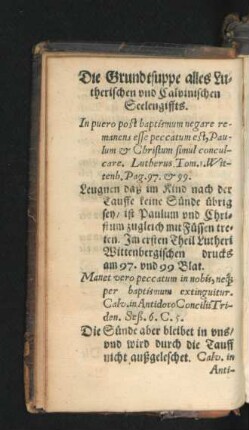 Die Grundtsuppe alles Lu-
therischen vnd Calvinischen
Seelengiffts.
In puero post baptismum negare re-
manens esse peccatum est, Pau-
lum & Christum simul concul-
care. Lutherus Tom. 1. Wit-
tenb. Pag. 97. & 99.
Leugnen daz im Kind nach der
Tauffe keine Sünde übrig
sey/ ist Paulum vnd Chri-
stum zugleich mit Füssen tre-
ten. Im ersten Theil Lutheri
Wittenbergischen drucks
am 97. vnd 99 Blat.
Manet vero peccatum in nobis, neq;
per baptismum extinguitur.
Calv. in Antidoto Concilii Tri-
den. Seß. 6. C. 5.
Die Sünde aber bleibet in vns/
vnd wird durch die Tauff
nicht außgeleschet. Calv. in
Anti-